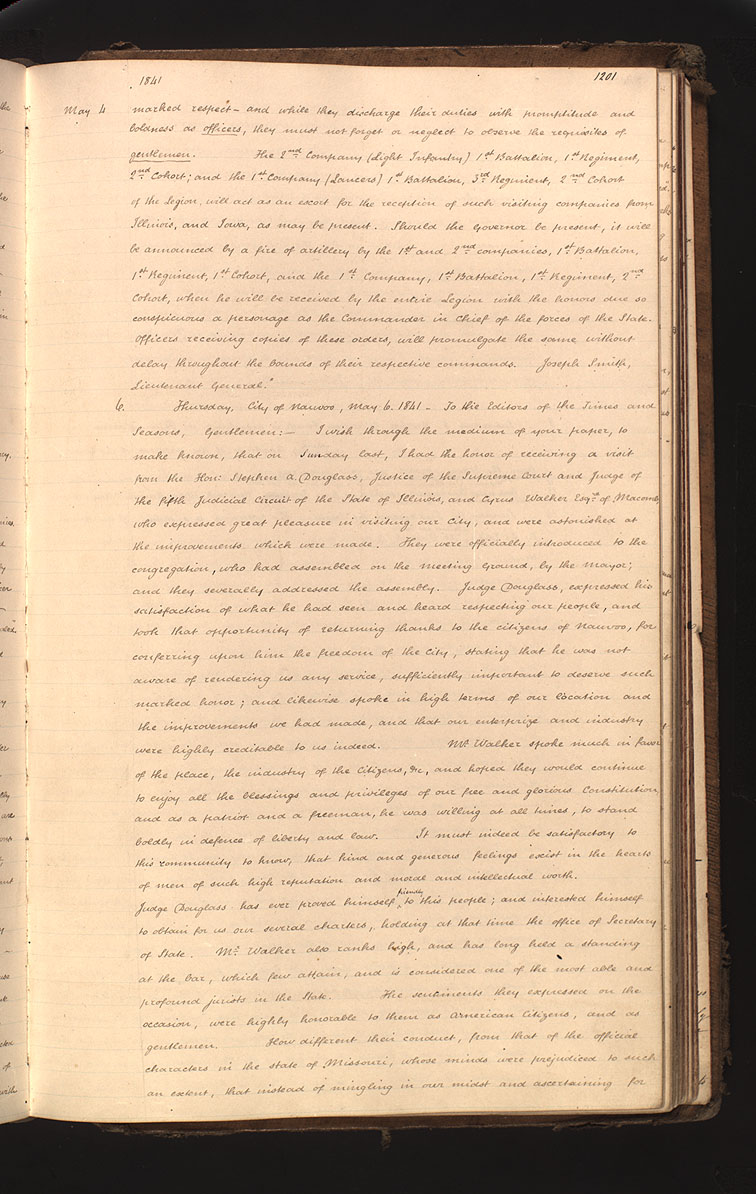 1841 1201
May 4 marked respect"— and while they discharge their duties with promptitude and
boldness as officers, they must not forget or neglect to observe the requisites of
gentlemen. The 2nd Company (Light Infantry) 1st Battalion, 1st Regiment,
2nd Cohort; and the 1st Company (Lancers) 1st Battalion, 3rd Regiment, 2nd Cohort
of the Legion, will act as an escort for the reception of such visiting companies from
Illinois, and Iowa, as may be present. Should the Governor be present, it will
be announced by a fire of artillery by the 1st and 2nd companies, 1st Battalion,
1st Regiment, 1st Cohort, and the 1st Company, 1st Battalion, 1st Regiment, 2nd
Cohort, when he will be received by the entire Legion with the honors due so
conspicuous a personage as the Commander in Chief of the forces of the State.
Officers receiving copies of these orders, will promulgate the same without
delay throughout the bounds of their respective commands. Joseph Smith,
Lieutenant General."
6. Thursday, City of Nauvoo, May 6. 1841 — To the Editors of the Times and
Seasons, Gentlemen:— I wish through the medium of your paper, to
make known, that on Sunday last, I had the honor of receiving a visit
from the Hon: Stephen A. Douglass, Justice of the Supreme Court and Judge of
the fifth Judicial Circuit of the State of Illinois, and Cyrus Walker Esqre of Macomb,
who expressed great pleasure in visiting our City, and were astonished at
the improvements which were made. They were officially introduced to the
congregation, who had assembled on the meeting ground, by the Mayor;
and they severally addressed the assembly. Judge Douglass, expressed his
satisfaction of what he had seen and heard respecting our people, and
took that opportunity of returning thanks to the citizens of Nauvoo, for
conferring upon him the freedom of the City, stating that he was not
aware of rendering us any service, sufficiently important to deserve such
marked honor; and likewise spoke in high terms of our location and
the improvements we had made, and that our enterprize and industry
were highly creditable to us indeed. Mr Walker spoke much in favor
of the place, the industry of the citizens, &c, and hoped they would continue
to enjoy all the blessings and privileges of our free and glorious Constitution,
and as a patriot and a freeman, he was willing at all times, to stand
boldly in defence of liberty and law. It must indeed be satisfactory to
this community to know, that kind and generous feelings exist in the hearts
of men of such high reputation and moral and intellectual worth.
Judge Douglass has ever proved himself friendly to this people; and interested himself
to obtain for us our several charters, holding at that time the office of Secretary
of State. Mr Walker also ranks high, and has long held a standing
at the bar, which few attain, and is considered one of the most able and
profound jurists in the State. The sentiments they expressed on the
occasion, were highly honorable to them as American Citizens, and as
gentlemen. How different their conduct, from that of the official
characters in the state of Missouri, whose minds were prejudiced to such
an extent, that instead of mingling in our midst and ascertaining for